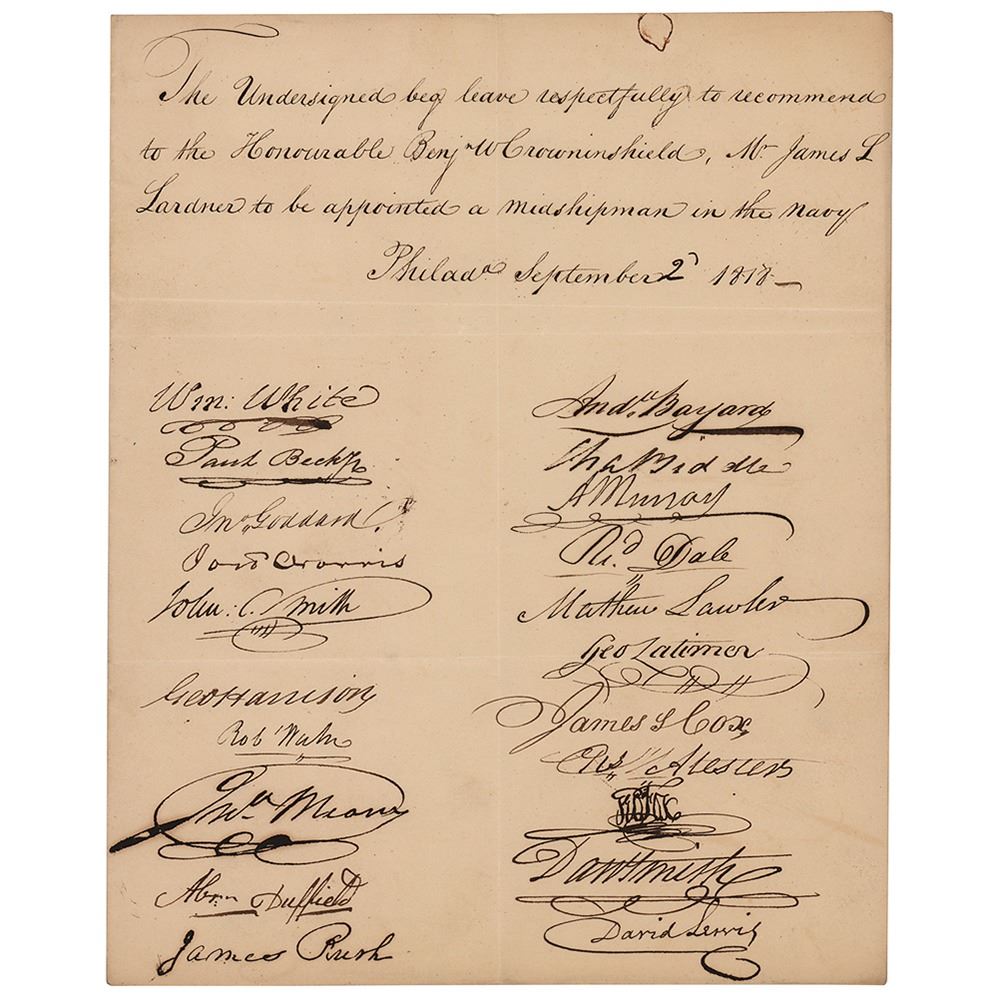 The Undersigned beg leave respectfully to recommend
to the Honourable Benjn W Crowninshield, Mr James L
Lardner to be appointed a midshipman in the navy
Philada September 2d 1818
Wm: White
Paul Beck Jr
Jno Goddard
John C. Smith
Geo Harrison
Robt Waln
Abrm Duffield
James Rush
Andw Bayard
Cha Biddle
A Murray
Rid Dale
Mathew Lawler
Geo Latimer
James S Cox
David Lewis